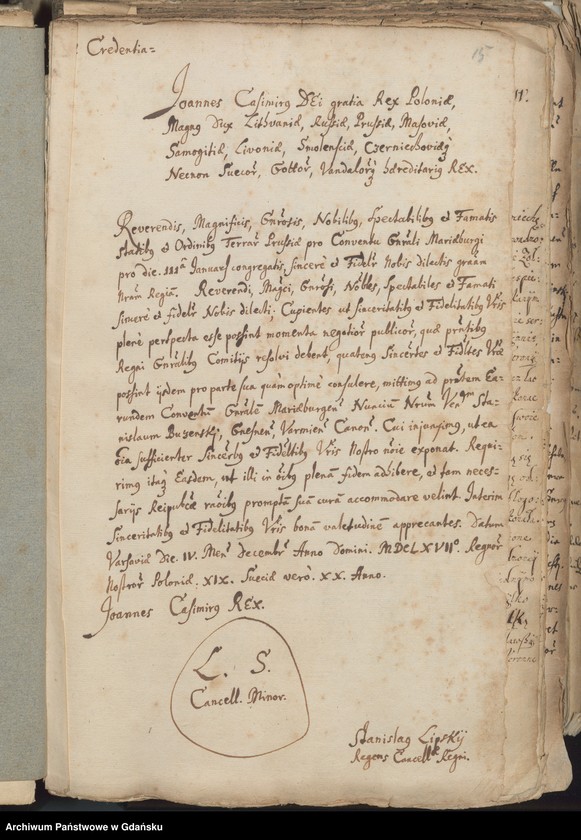 Credentia=
15
Joannes Casimirꝰ DEi gratia Rex Poloniæ,
Magnꝰ Dux Lithvaniæ, Russiæ, Prussiæ, Masoviæ,
Samogitiæ, Livoniæ, Smolensciæ, Czerniechoviæqꝫ
Necnon Suecor̃, Gottor̃, Vandalor̃qꝫ hæreditariꝰ REX.
Reverendis, Magnificis, Gn̄rosis, Nobilibꝰ, Spectabilibꝰ et Famatis
Statibꝰ et Ordinibꝰ Terrar̃ Prussiæ pro Conventu Gn̄rali Mariæburgi
pro die. IIIa Januarÿ congregatis, sincerè et Fidelr̃ Nobis dilectis gr̄am
Nr̄am Regiā. Reverendi, Mag̃ci, Gn̄rosi, Nob̃les, Spectabiles et Famati
sincerè et fidelr̃ Nobis dilecti; Cupientes ut Sinceritatibꝰ et Fidelitatibꝰ Vr̄is
plenè perspecta esse possint momenta negotior̃ publicor̃, quæ præn̄tibꝰ
Regni Gn̄ralibꝰ Comitijs resolvi debent, quatenꝰ Sincer̃tes et Fidel̃tes Vr̄æ
possint ijsdem pro parte sua quàm optimè consulere, mittimꝰ ad præn̄tem Ea-
rundem Conventū Gn̄ralē Mariæburgen̄: Nunciū Nr̄um Ven: Sta-
nislaum Buzenskj, Gnesnen̄, Varmien̄ Canon̄. Cui injunximꝰ, ut ea
o̅ia sufficienter Sincer̃tibꝰ et Fidel̃tibꝰ Vr̄is Nostro no̅ie exponat. Requi-
rimꝰ itaqꝫ Easdem, ut illi in o̅ibꝰ plenā fidem adhibere, et tam neces-
sarijs Reipub̃cæ ra̅oibꝰ promptā suā curā accommodare velint. Interim
Sinceritatibꝰ et Fidelitatibꝰ Vr̄is bonā valetudinē apprecantes. Datum
Varsaviæ Die. IV. Men̄: Decembr̃ Anno Domini. MDCLXVIIo. Regnor̃
Nostror̃ Poloniæ. XIX. Sueciæ verò. XX. Anno.
Joannes Casimirꝰ REX.
L. S.
Cancell. Minor.
Stanislaꝰ Lipskÿ
Regens Cancell: Regni.
Archiwum Państwowe w Gdańsku